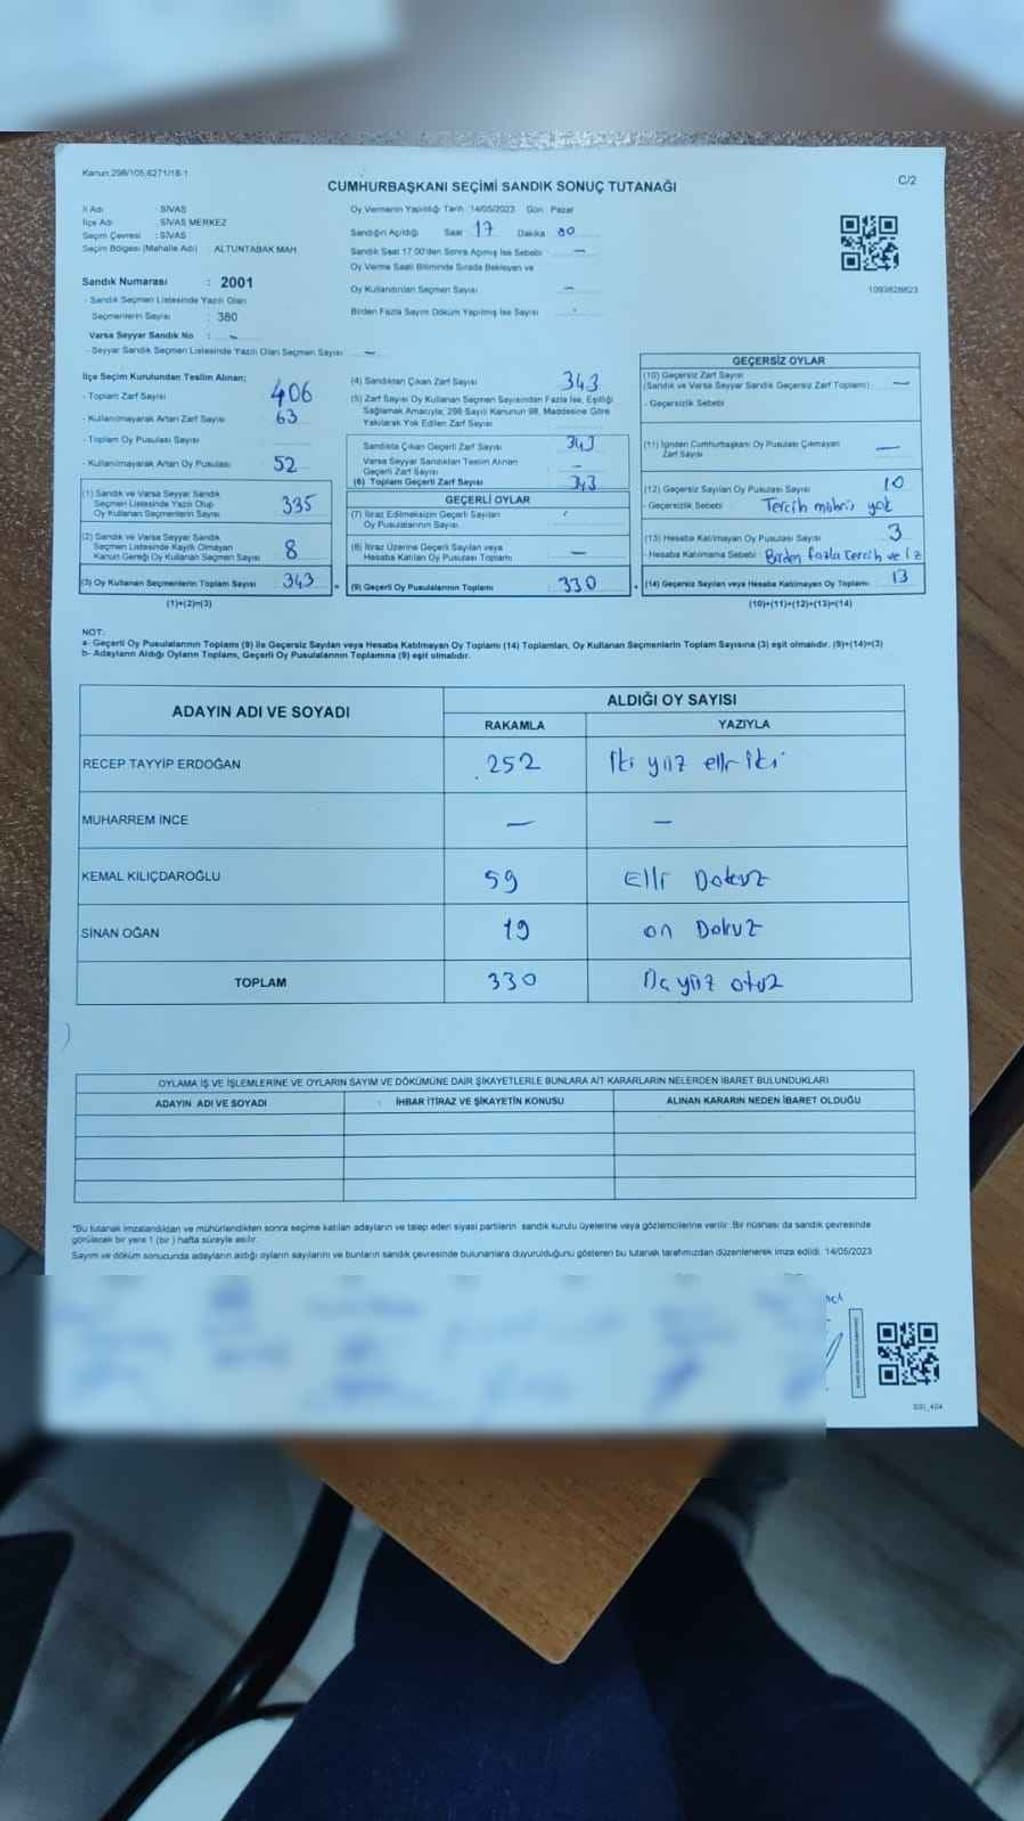 Kanun 298/105,6271/18-1
C/2
CUMHURBAŞKANI SEÇİMİ SANDIK SONUÇ TUTANAĞI
İl Adı : SİVAS
İlçe Adı : SİVAS MERKEZ
Seçim Çevresi : SİVAS
Seçim Bölgesi (Mahalle Adı) ALTUNTABAK MAH.
Sandık Numarası : 2001
- Sandık Seçmen Listesinde Yazılı Olan
Seçmenlerin Sayısı : 380
Varsa Seyyar Sandık No : -
- Seyyar Sandık Seçmen Listesinde Yazılı Olan Seçmen Sayısı -
Oy Vermenin Yapıldığı Tarih :14/05/2023 Gün : Pazar
Sandığın Açıldığı Saat 17 Dakika
Sandık Saat 17.00'den Sonra Açılmış İse Sebebi -
Oy Verme Saati Bitiminde Sırada Bekleyen ve
Oy Kullandırılan Seçmen Sayısı -
Birden Fazla Sayım Döküm Yapılmış İse Sayısı
1093628623
İlçe Seçim Kurulundan Teslim Alınan;
- Toplam Zarf Sayısı 406
- Kullanılmayarak Artan Zarf Sayısı 63
- Toplam Oy Pusulası Sayısı
- Kullanılmayarak Artan Oy Pusulası 52
(1) Sandık ve Varsa Seyyar Sandık
Seçmen Listesinde Yazılı Olup
Oy Kullanan Seçmenlerin Sayısı 335
(2) Sandık ve Varsa Seyyar Sandık
Seçmen Listesinde Kayıtlı Olmayan
Kanun Gereği Oy Kullanan Seçmen Sayısı 8
(3) Oy Kullanan Seçmenlerin Toplam Sayısı 343
(1)+(2)=(3)
(4) Sandıktan Çıkan Zarf Sayısı 343
(5) Zarf Sayısı Oy Kullanan Seçmen Sayısından Fazla İse, Eşitliği
Sağlamak Amacıyla, 298 Sayılı Kanunun 98. Maddesine Göre
Yakılarak Yok Edilen Zarf Sayısı
Sandıkta Çıkan Geçerli Zarf Sayısı 343
Varsa Seyyar Sandıktan Teslim Alınan
Geçerli Zarf Sayısı -
(6) Toplam Geçerli Zarf Sayısı 343
GEÇERLİ OYLAR
(7) İtiraz Edilmeksizin Geçerli Sayılan
Oy Pusulalarının Sayısı
(8) İtiraz Üzerine Geçerli Sayılan veya
Hesaba Katılan Oy Pusulası Toplamı -
(9) Geçerli Oy Pusulalarının Toplamı 330
GEÇERSİZ OYLAR
(10) Geçersiz Zarf Sayısı
(Sandık ve Varsa Seyyar Sandık Geçersiz Zarf Toplamı) -
- Geçersizlik Sebebi
(11) İçinden Cumhurbaşkanı Oy Pusulası Çıkmayan
Zarf Sayısı -
(12) Geçersiz Sayılan Oy Pusulası Sayısı 10
- Geçersizlik Sebebi Tercih mührü yok
(13) Hesaba Katılmayan Oy Pusulası Sayısı 3
- Hesaba Katılmama Sebebi Birden fazla tercih ve iz
(14) Geçersiz Sayılan veya Hesaba Katılmayan Oy Toplamı 13
(10)+(11)+(12)+(13)=(14)
NOT:
a- Geçerli Oy Pusulalarının Toplamı (9) ile Geçersiz Sayılan veya Hesaba Katılmayan Oy Toplamı (14) Toplamları, Oy Kullanan Seçmenlerin Toplam Sayısına (3) eşit olmalıdır. (9)+(14)=(3)
b- Adayların Aldığı Oyların Toplamı, Geçerli Oy Pusulalarının Toplamına (9) eşit olmalıdır.
ADAYIN ADI VE SOYADI ALDIĞI OY SAYISI
RAKAMLA YAZIYLA
RECEP TAYYİP ERDOĞAN 252 İki yüz elli iki
MUHARREM İNCE - -
KEMAL KILIÇDAROĞLU 59 Elli Dokuz
SİNAN OĞAN 19 on Dokuz
TOPLAM 330 Üç yüz otuz
OYLAMA İŞ VE İŞLEMLERİNE VE OYLARIN SAYIM VE DÖKÜMÜNE DAİR ŞİKAYETLERLE BUNLARA AİT KARARLARIN NELERDEN İBARET BULUNDUKLARI
ADAYIN ADI VE SOYADI İHBAR İTİRAZ VE ŞİKAYETİN KONUSU ALINAN KARARIN NEDEN İBARET OLDUĞU
*Bu tutanak imzalandıktan ve mühürlendikten sonra seçime katılan adayların ve talep eden siyasi partilerin sandık kurulu üyelerine veya gözlemcilerine verilir. Bir nüshası da sandık çevresinde
görülecek bir yere 1 (bir) hafta süreyle asılır.
Sayım ve döküm sonucunda adayların aldığı oyların sayılarını ve bunların sandık çevresinde bulunanlara duyurulduğunu gösteren bu tutanak tarafımızdan düzenlenerek imza edildi. 14/05/2023